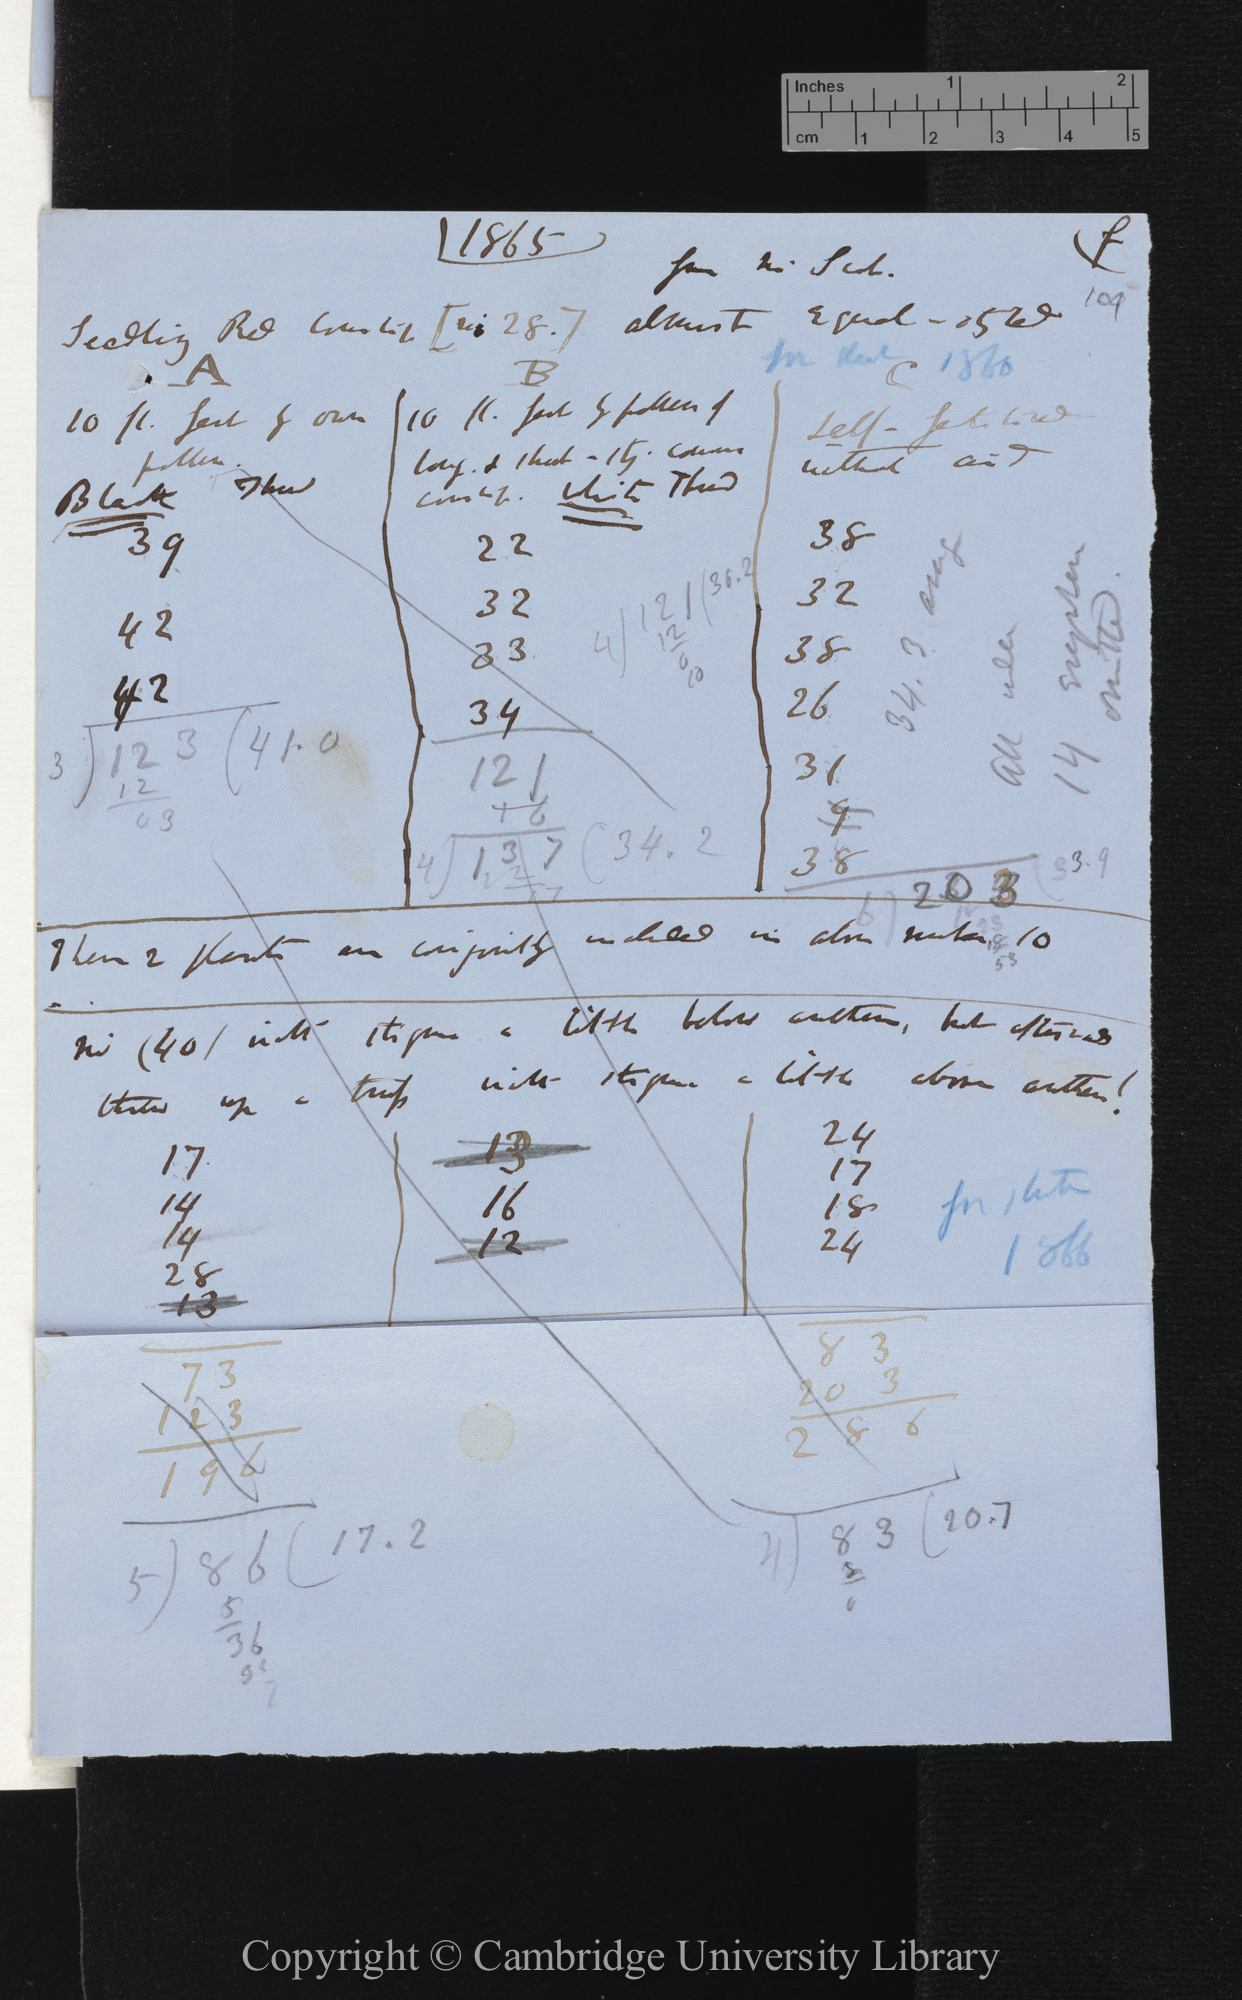 Inches 1 2
cm 1 2 3 4 5
1865
109
Seedling Red Cowslip [no 28.] almost equal-styled
for sheet 1866
A B C
10 fl. fert by own
pollen.
Black Thread
39
42
42
3) 123 (41.0
12
03
10 fl. fert by pollen of
long. & short-sty. common
cowslip. White Thread
22
32
33
34
121
16
4) 137 (34.2
4) 121 (30.2
12
0
10
Self-fertilised
without aid
38
32
38
26
31
9
38
6) 203 (33.9
34.3 average
14
omitted.
These 2 plants are conjointly included in above number 10
No (40) with stigma a little below anthers, but afterwards
threw up a truss with stigma a little above anthers!
17
14
14
28
13
13
16
12
24
17
18
24
for sheet
1866
73
123
196
5) 86 (17.2
5
36
83
203
286
4) 83 (20.7
8
0
Copyright © Cambridge University Library